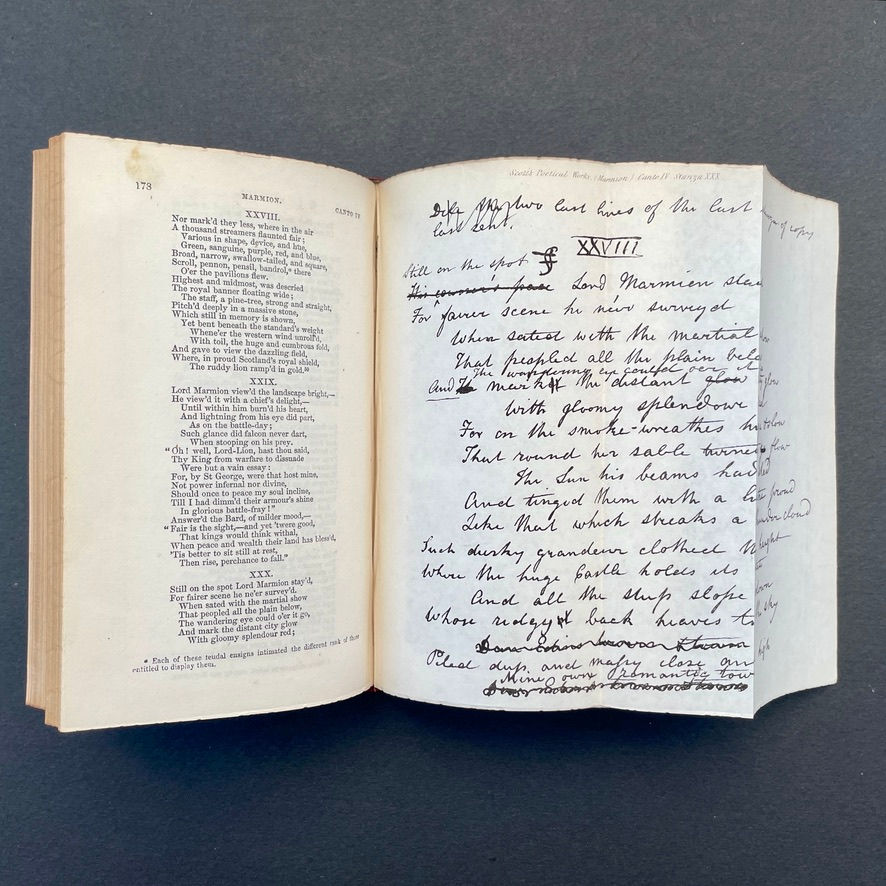 178
MARMION.
CANTO IV
XXVIII.
Nor mark'd they less, where in the air
A thousand streamers flaunted fair;
Various in shape, device, and hue,
Green, sanguine, purple, red, and blue,
Broad, narrow, swallow-tailed, and square,
Scroll, pennon, pensil, bandrol,* there
O'er the pavilions flew.
Highest and midmost, was descried
The royal banner floating wide;
The staff, a pine-tree, strong and straight,
Pitch'd deeply in a massive stone,
Which still in memory is shown,
Yet bent beneath the standard's weight
Whene'er the western wind unroll'd,
With toil, the huge and cumbrous fold,
And gave to view the dazzling field,
Where, in proud Scotland's royal shield,
The ruddy lion ramp'd in gold.
XXIX.
Lord Marmion view'd the landscape bright,—
He view'd it with a chief's delight,—
Until within him burn'd his heart,
And lightning from his eye did part,
As on the battle-day;
Such glance did falcon never dart,
When stooping on his prey.
"Oh! well, Lord-Lion, hast thou said,
Thy King from warfare to dissuade
Were but a vain essay:
For, by St George, were that host mine,
Not power infernal nor divine,
Should once to peace my soul incline,
Till I had dimm'd their armour's shine
In glorious battle-fray!"
Answer'd the Bard, of milder mood,—
"Fair is the sight,—and yet 'twere good,
That kings would think withal,
When peace and wealth their land has bless'd,
'Tis better to sit still at rest,
Then rise, perchance to fall."
XXX.
Still on the spot Lord Marmion stay'd,
For fairer scene he ne'er survey'd.
When sated with the martial show
That peopled all the plain below,
The wandering eye could o'er it go,
And mark the distant city glow
With gloomy splendour red;
* Each of these feudal ensigns intimated the different rank of those
entitled to display them.
Scott's Poetical Works. (Marmion) Canto IV Stanza XXX.
two last lines of the last
last sent.
of copy
XXVIII
Still on the spot
Lord Marmion
For fairer scene he ne'er surveyd
When sated with the martial
That peopled all the plain
The wandering eye could oer it
And mark the distant glow
glow
With gloomy splendour
For on the smoke-wreathes
slow
That round her sable turned
flow
The Sun his beams had
And tinged them with a
proud
Like that which streaks a
cloud
Such dusky grandeur clothed
height
Where the huge Castle holds its
And all the steep slope
Whose ridgy back heaves to
sky
Piled deep and massy close an
high
Mine own romantic tow